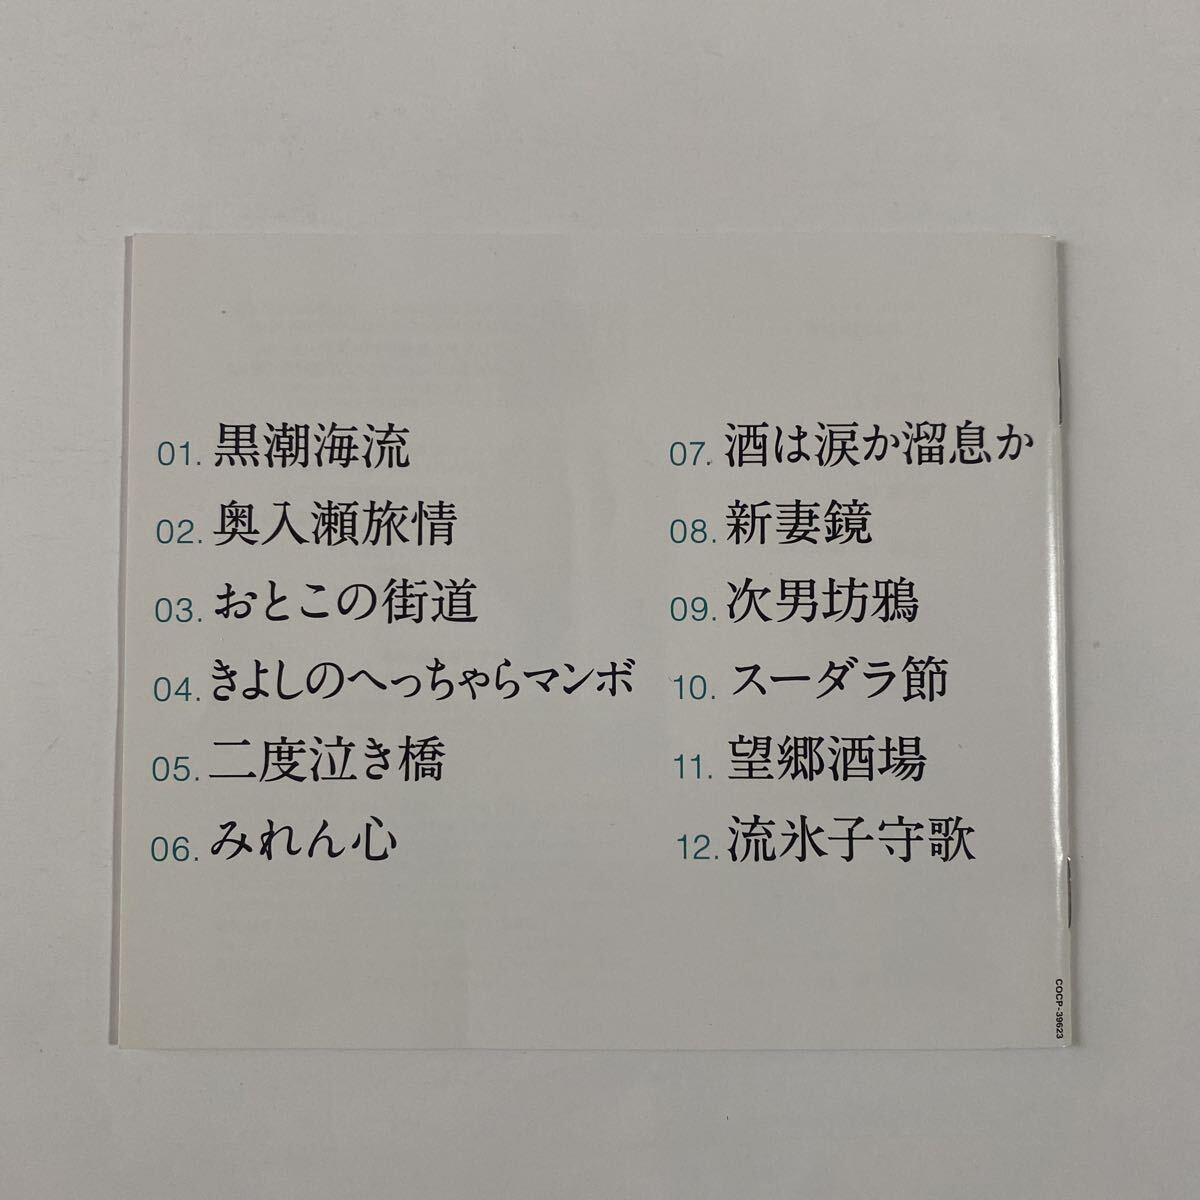 01. 黒潮海流
02. 奥入瀬旅情
03. おとこの街道
04. きよしのへっちゃらマンボ
05. 二度泣き橋
06. みれん心
07. 酒は涙か溜息か
08. 新妻鏡
09. 次男坊鴉
10. スーダラ節
11. 望郷酒場
12. 流氷子守歌
COCP-39623